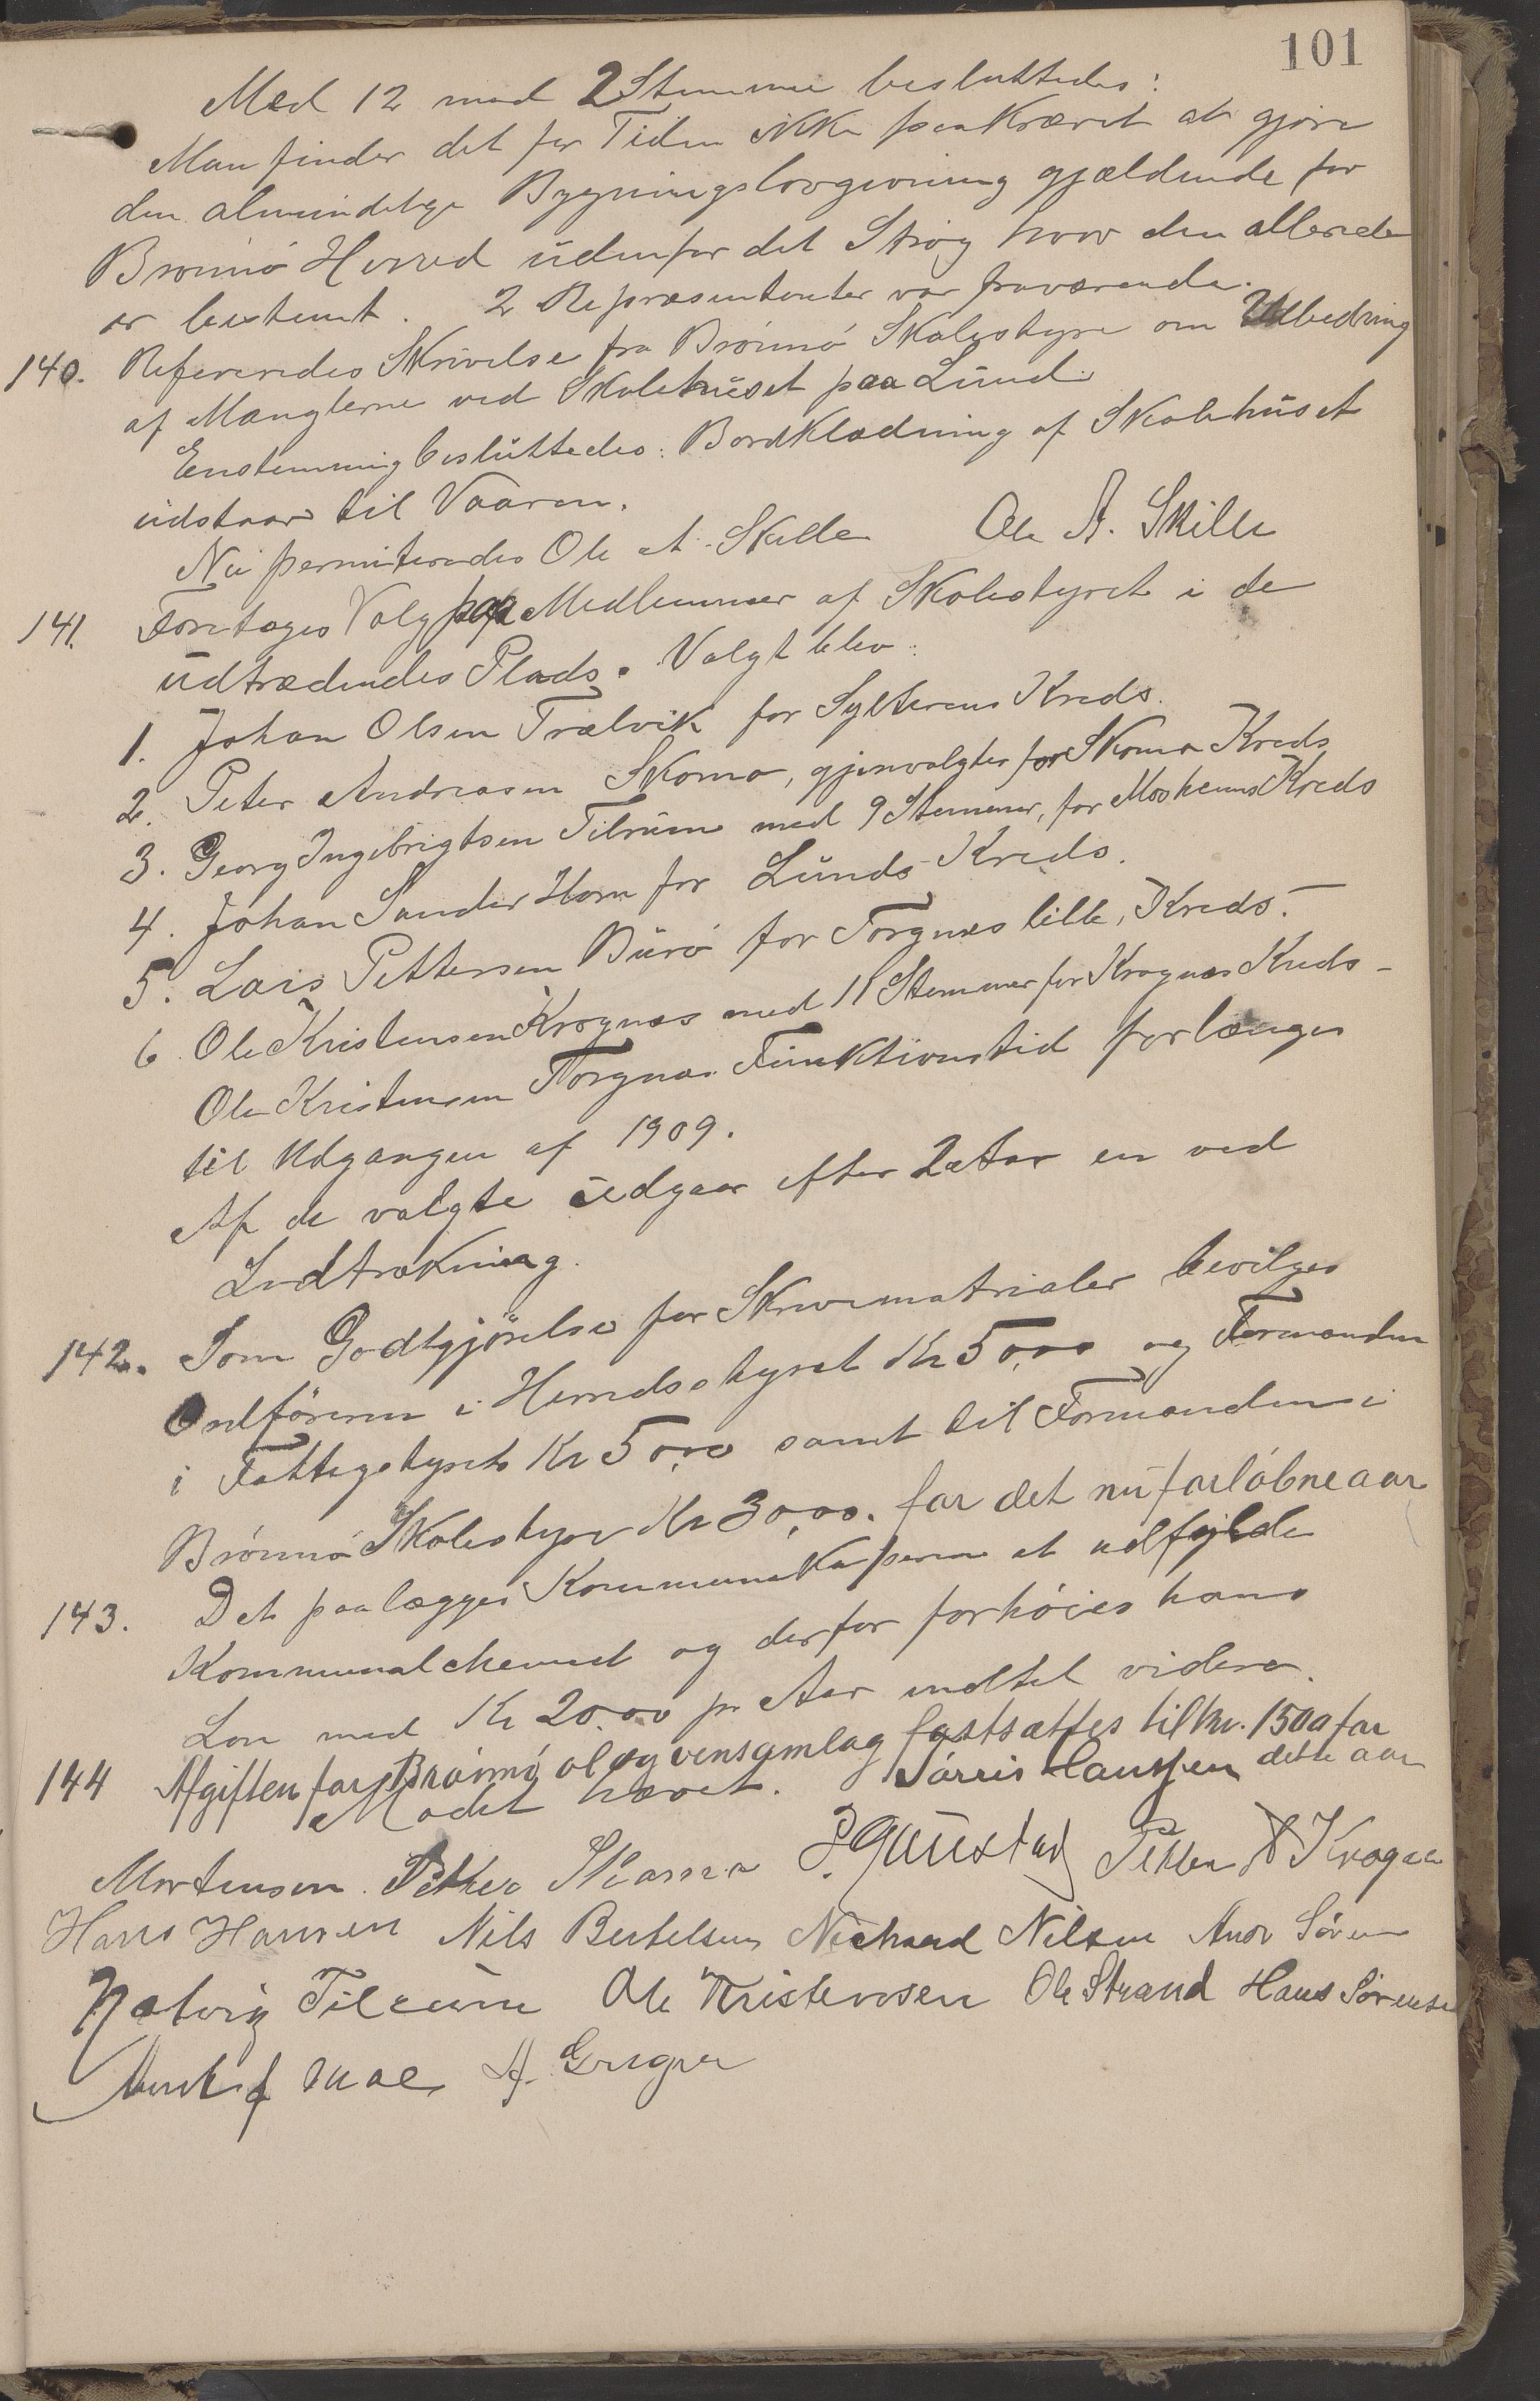 101
Med 12 mod 2 Stemmer besluttedes:
Man finder det for Tiden ikke paakrævet at gjöre
den almindelige Bygningslovgivning gjældende for
Brönnö Herred udenfor det Strög hvor den allerede
er bestemt. 2 Repræsentanter var fraværende.
140. Refereredes Skrivelse fra Brönnö Skolestyre om Udbedring
af Manglerne ved Skolehuset paa Lund.
Enstemmig besluttedes: Bordklædning af Skolehuset
udstaar til Vaaren.
Nu permitteredes Ole A. Skille Ole A. Skille
141. Foretoges Valg paa Medlemmer af Skolestyret i de
udtrædendes Plads. Valgt blev:
1. Johan Olsen Trælvik for Sylterens Kreds.
2. Peter Andreasen Skomo, gjenvalgtes for Skomo Kreds
3. Georg Ingebrigtsen Tilrum med 9 Stemmer, for Mosheims Kreds
4. Johan Sander Horn for Lunds Kreds.
5. Lars Pettersen Burö for Torgnes lille, Kreds.
6. Ole Kristensen Krognes med 11 Stemmer for Krognes Kreds -
Ole Kristensen Torgnes Funktionstid forlænges
til Udgangen af 1909.
Af de valgte udgaar efter 2 Aar en ved
Lodtrækning.
142. Som Godtgjörelse for Skrivematrialer bevilges
Ordföreren i Herredsstyret Kr 50,00 og Formanden
i Fattigstyret Kr 50,00 samt til Formanden i
Brönnö Skolestyre Kr 30,00. for det nu forløbne aar
143. Det paalægges Kommunekasseren at udfylde
Kommunalskemaet og derfor forhöies hans
Lön med Kr 20.00 pr Aar indtil videre.
144 Afgiften for Brönnö øl og vinsamlag fastsættes til kr. 1500 for
dette aar
Mödet hævet. Sörris Hanssen
Mortensen. Petter Skomo P. Gaustad Petter Krogne
Hans Hansen Nils Bertelsen Richard Nilsen Andr Sören
Hartvig Tilrum Ole Kristensen Ole Strand Hans Sörensen
Moe A. Greger